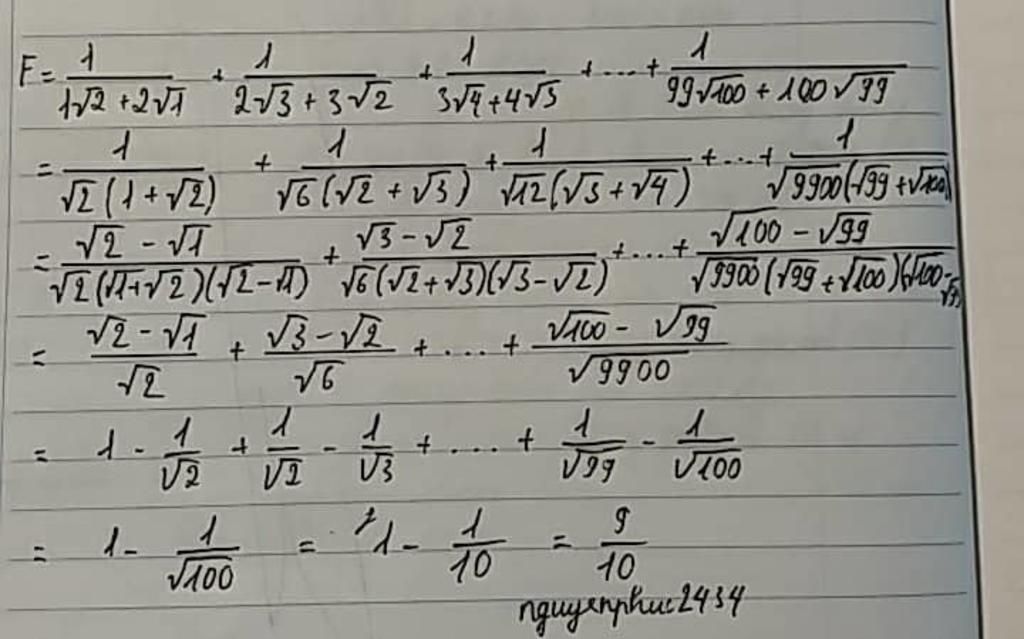 F = 1/(1√2 + 2√1) + 1/(2√3 + 3√2) + 1/(3√4 + 4√3) + ... + 1/(99√100 + 100√99)
= 1/(√2(1 + √2)) + 1/(√6(√2 + √3)) + 1/(√12(√3 + √4)) + ... + 1/(√9900(√99 + √100))
= (√2 - √1)/(√2(√1 + √2)(√2 - √1)) + (√3 - √2)/(√6(√2 + √3)(√3 - √2)) + ... + (√100 - √99)/(√9900(√99 + √100)(√100 - √99))
= (√2 - √1)/√2 + (√3 - √2)/√6 + ... + (√100 - √99)/√9900
= 1 - 1/√2 + 1/√2 - 1/√3 + ... + 1/√99 - 1/√100
= 1 - 1/√100 = 1 - 1/10 = 9/10
nguyenphuc2434